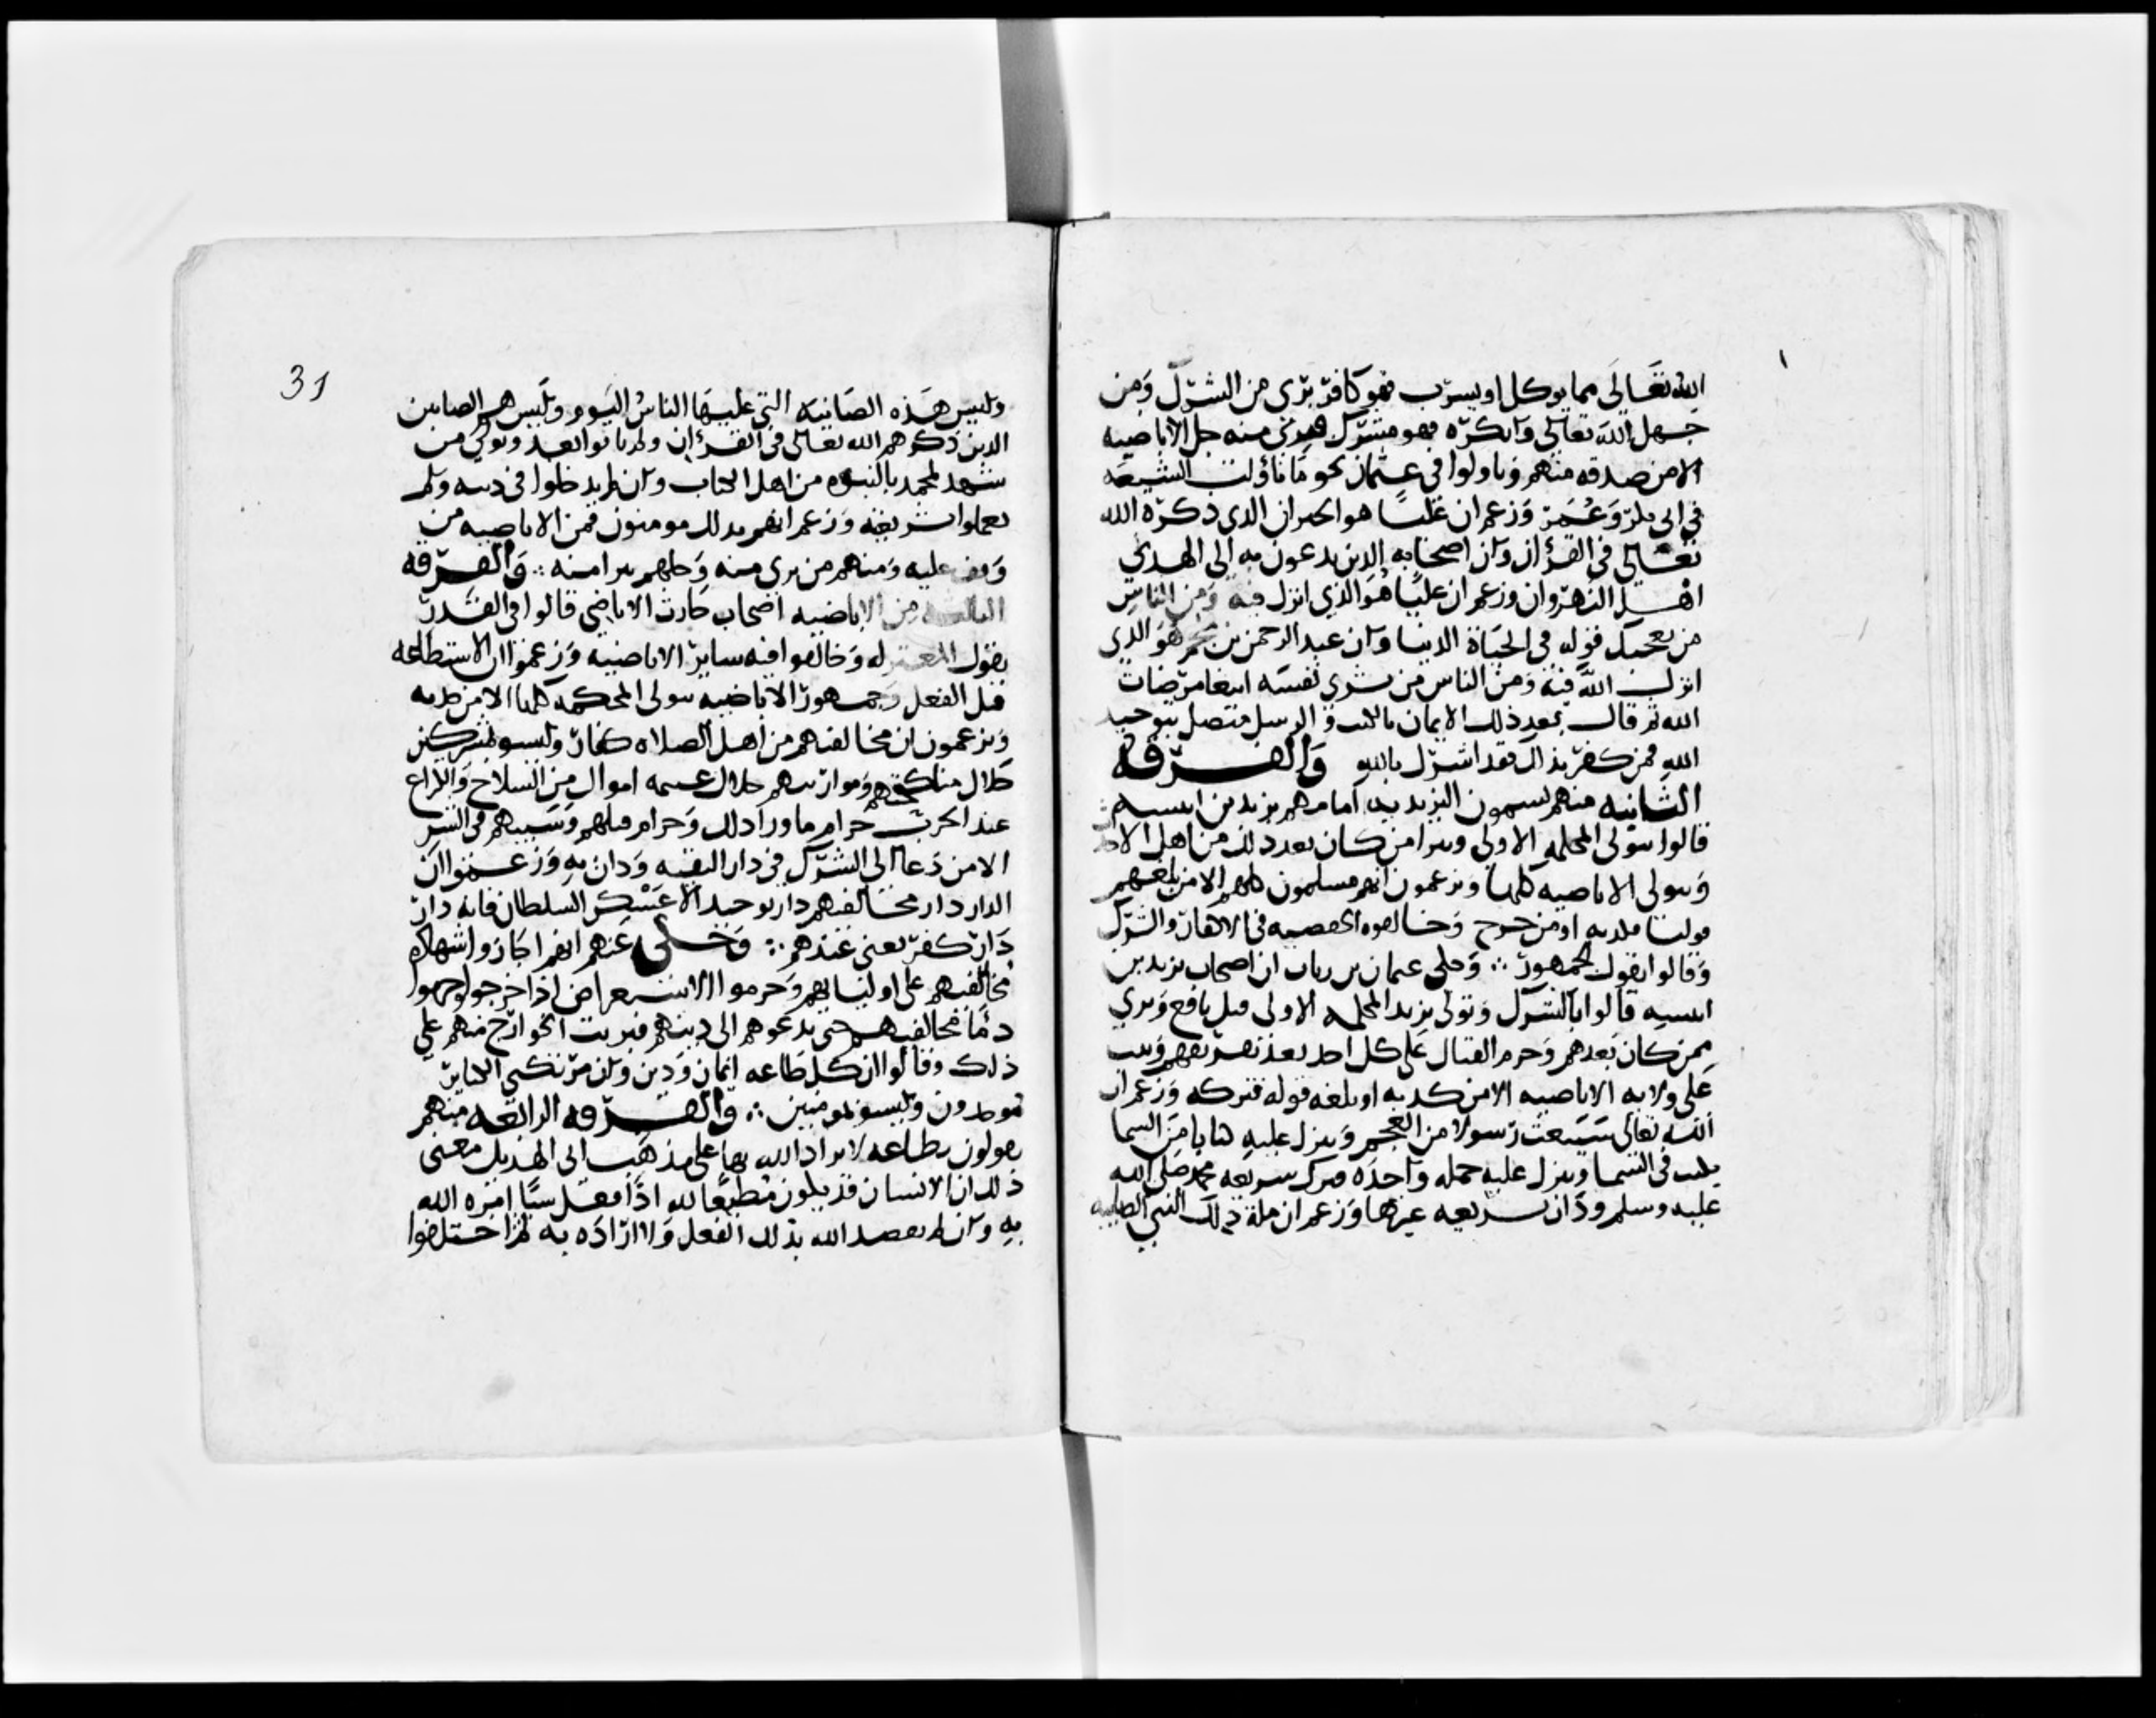 الله تعالى مما يوكل او يشرب فهو كافر برى من الشرك ومن
جهل الله تعالى وانكره فهو مشرك فبرئ منه جل الاباضيه
الا من صدقه منهم وتاولوا في عثمان نحو ما تاولت الشيعه
في ابى بكر وعمر وزعم ان عليا هو الحيران الذي ذكره الله
تعالى في القرءان وان اصحابه الذين يدعونه الى الهدى
اهل النهروان وزعم ان عليا هو الذي انزل فيه ومن الناس
من يعجبك قوله في الحياة الدنيا وان عبد الرحمن بن ملجم هو الذي
انزل الله فيه ومن الناس من يشرى نفسه ابتغا مرضات
الله ثم قال بعد ذلك الايمان بالكتب والرسل متصل بتوحيد
الله فمن كفر بذلك فقد اشرك بالله والفرقه
الثانيه منهم يسمون اليزيديه امامهم يزيد بن انيسه
قالوا نتولى المحكمه الاولى ونبرا من كان بعد ذلك من اهل
ونتولى الاباضيه كلها ونزعمون انهم مسلمون كلهم الا من بلغهم
قولنا فكذبه او من خرج وخالفوه الحفصيه في الاكفار والشرك
وقالوا بقول الجمهور ∴ وحكى يمان بن رباب ان اصحاب يزيد بن
انيسه قالوا بالشرك وتولى يزيد المحكمه الاولى قبل نافع وبرى
ممن كان بعدهم وحرم القتال على كل احد بعد تفريقهم وثبت
على ولايه الاباضيه الا من كذبه او بلغه قوله فتركه وزعم ان
الله تعالى سيبعث رسولا من العجم وينزل عليه كتابا من السما
يكتب في السما وينزل عليه جمله واحده فترك شريعه محمد صلى الله
عليه وسلم ودان بشريعه غيرها وزعم ان ملة ذلك النبي الصابيه
31
وليس هذه الصابيه التي عليها الناس اليوم وليس هم الصابين
الذين ذكرهم الله تعالى في القرءان ولم ياتوا بعد وتولى من
شهد لمحمد بالنبوه من اهل الكتاب وان لم يدخلوا في دينه ولم
يعملوا بشريعته وزعم انهم بذلك مومنون فمن الاباضيه من
وقف عليه ومنهم من برى منه وجلهم تبرا منه ∴ والفرقه
الثالثه من الاباضيه اصحاب حارث الاباضي قالوا في القدر
بقول المعتزله وخالفوا فيه ساير الاباضيه وزعموا ان الاستطاعه
قبل الفعل وجمهور الاباضيه يتولى المحكمه كلها الا من خرج
ويزعمون ان مخالفيهم من اهل الصلاه كفار وليسو بمشركين
حلال مناكحتهم وموارثتهم حلال غنيمه اموالهم من السلاح والكراع
عند الحرب حرام ما ورا ذلك وحرام قتلهم وسبيهم في السر
الا من دعا الى الشرك في دار التقيه ودان به وزعموا ان
الدار دار مخالفيهم دار توحيد الا عسكر السلطان فانه دار
دار كفر يعنى عندهم ∴ وحكى عنهم انهم اجازوا شهاده
مخالفيهم على اوليايهم وحرموا الاستعراض اذا خرجوا وحرموا
دما مخالفيهم حتى يدعوهم الى دينهم فبريت الخوارج منهم على
ذلك وقالوا ان كل طاعه ايمان ودين وان مرتكبي الكباير
موحدون وليسو بمومنين ∴ والفرقه الرابعه منهم
يقولون بطاعه لا يراد الله بها على مذهب ابى الهذيل معنى
ذلك ان الانسان قد يكون مطيعا لله اذا فعل شيا امره الله
به وان لم يقصد الله بذلك الفعل ولا اراده به ثم اختلفوا